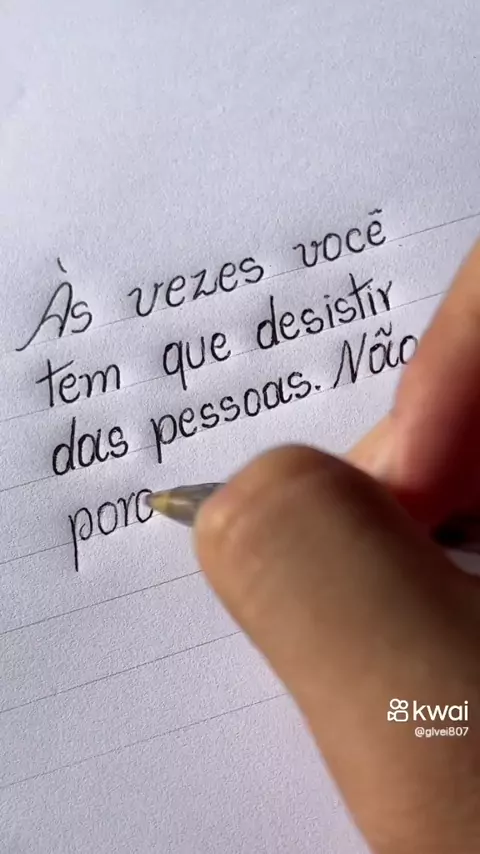 Às vezes você
tem que desistir
das pessoas. Não
porq
kwai
@glvei807